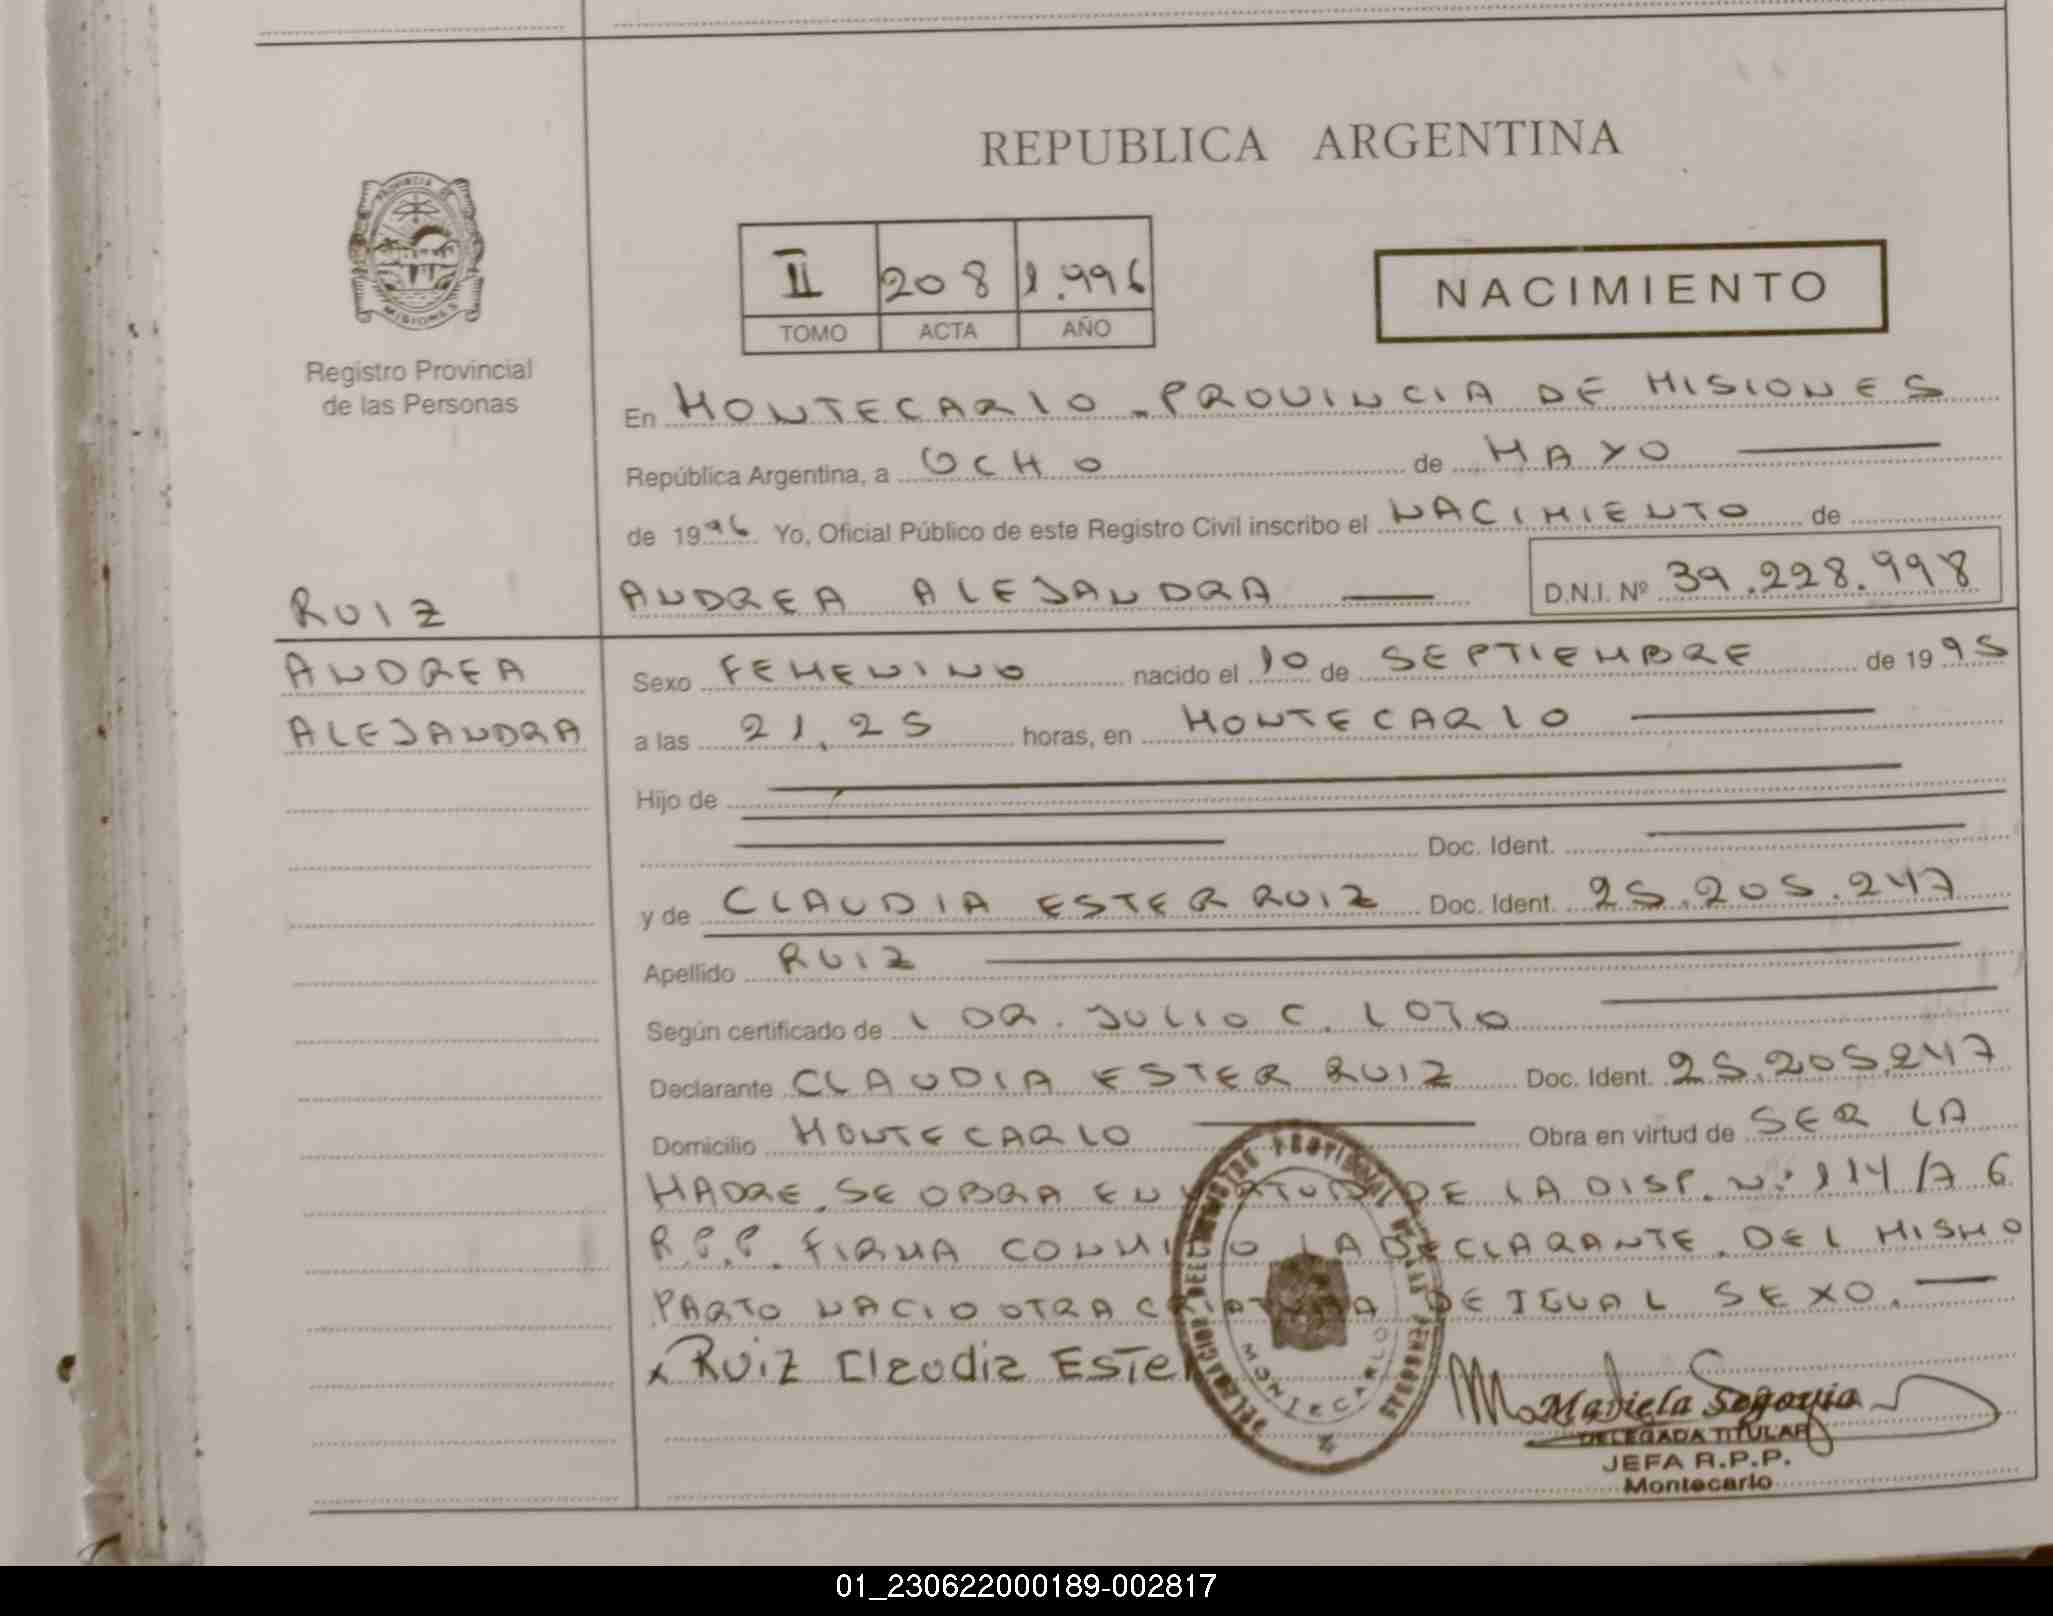 REPUBLICA ARGENTINA
PROVINCIA DE
MISIONES
Registro Provincial
de las Personas
II 208 1.996
TOMO ACTA AÑO
NACIMIENTO
En MONTECARLO - PROVINCIA DE MISIONES
República Argentina, a OCHO de MAYO
de 1996 Yo, Oficial Público de este Registro Civil inscribo el NACIMIENTO de
RUIZ
ANDREA ALEJANDRA D.N.I. Nº 39.228.998
ANDREA
ALEJANDRA
Sexo FEMENINO nacido el 10 de SEPTIEMBRE de 1995
a las 21.25 horas, en MONTECARLO
Hijo de
Doc. Ident.
y de CLAUDIA ESTER RUIZ Doc. Ident. 25.205.247
Apellido RUIZ
Según certificado de L DR. JULIO C. LOTO
Declarante CLAUDIA ESTER RUIZ Doc. Ident. 25.205.247
Domicilio MONTECARLO Obra en virtud de SER LA
MADRE. SE OBRA EN VIRTUD DE LA DISP. Nº 114/76
R.P.P. FIRMA CONMIGO LA DECLARANTE. DEL MISMO
PARTO NACIO OTRA CRIATURA DE IGUAL SEXO.
x Ruiz Claudia Ester
DELEGACION DEL REGISTRO PROVINCIAL DE LAS PERSONAS
MONTECARLO
Mariela Segovia
DELEGADA TITULAR
JEFA R.P.P.
Montecarlo
01_230622000189-002817